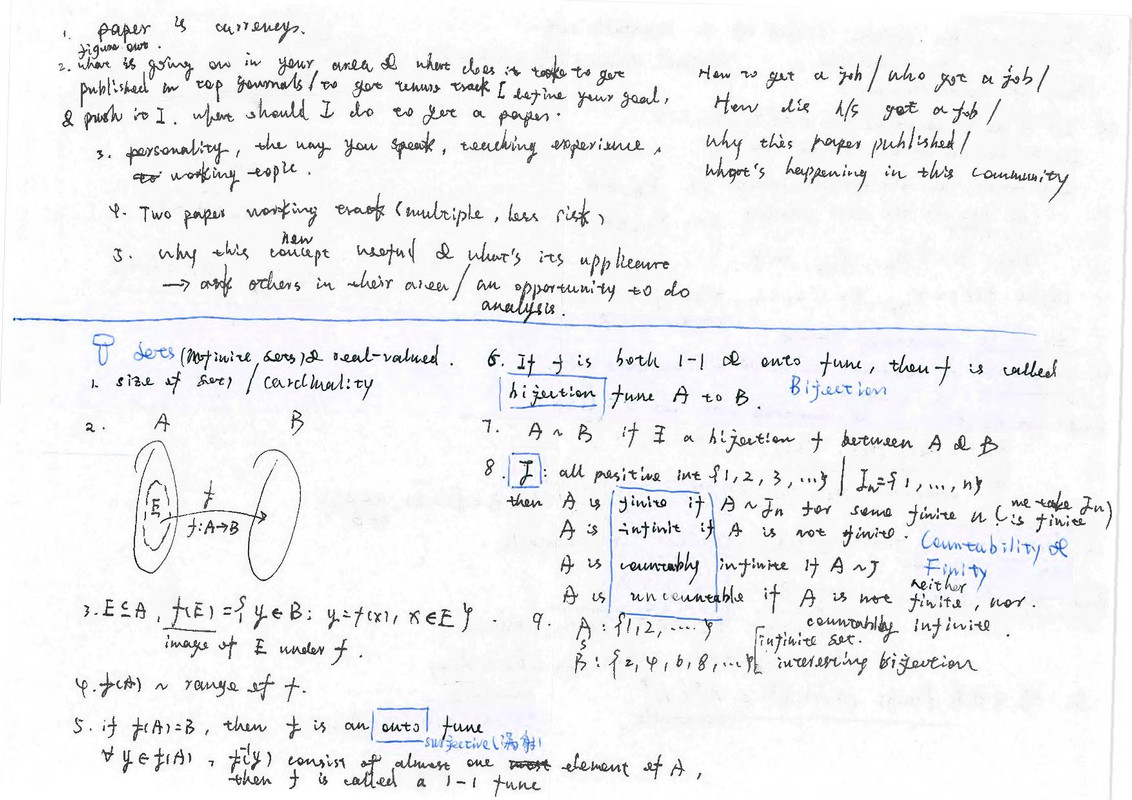 1. paper is currencys.
figure out.
2. what is going on in your area & what does it take to get
published in top journals / to get tenure track I define your goal,
& push it I. what should I do to get a paper.
3. personality, the way you speak, teaching experience,
working topic.
4. Two paper working track (multiple, less risk)
new
5. why this concept useful & what's its
→ ask others in their area / an opportunity to do
analysis.
How to get a job / who got a job /
How did h/s get a job /
why this paper published /
what's happening in this community
Sets (Infinite sets) & real-valued.
1. size of set) / cardinality
2. A B
E
f
f: A→B
3. E ⊆ A, f(E) = { y ∈ B; y = f(x), x ∈ E }.
image of E under f.
4. f(A) ~ range of f.
5. if f(A)=B, then f is an onto func
surjective (满射)
∀ y ∈ f(A), f⁻¹(y) consist of almost one element of A,
then f is called a 1-1 func
6. If f is both 1-1 & onto func, then f is called
bijection func A to B. Bijection
7. A ~ B if ∃ a bijection f between A & B
8. J : all positive int {1, 2, 3, ...} | Jn = {1, ..., n}
then A is finite if A ~ Jn for some finite n (me take Jn is finite)
A is infinit if A is not finite.
Countability &
Finity
A is countably infinite if A ~ J
A is uncountable if A is not neither finite, nor.
countably infinite.
9. A : {1, 2, ....}
B : {2, 4, 6, 8, ...} infinite set.
interesting bijection